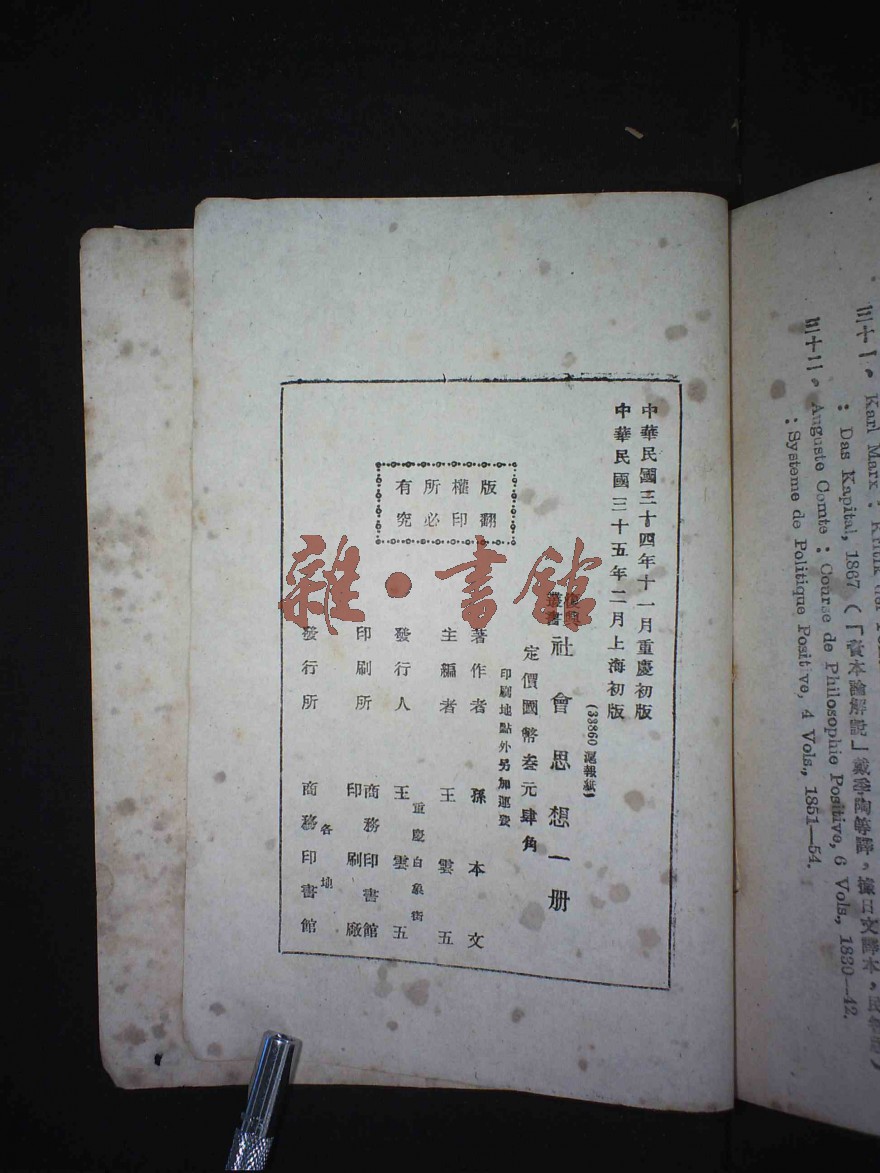 中華民國三十四年十一月重慶初版
中華民國三十五年二月上海初版
(33860 滬報紙)
復興
叢書
社會思想一册
定價國幣叁元肆角
印刷地點外另加運費
著作者 孫本文
主編者 王雲五
重慶白象街
發行人 王雲五
印刷所 商務印書館
印刷廠
各地
發行所 商務印書館
版權所有
翻印必究
雜·書館
三十一。 Karl Marx : Kritik der
: Das Kapital, 1867
三十二。 Auguste Comte : Course de Philosophie Positive, 6 Vols., 1830—42.
: Systeme de Politique Positive, 4 Vols., 1851—54.